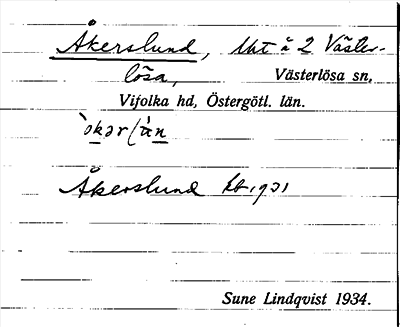 Åkerslund, lht å 2 Väster-
lösa, Västerlösa sn,
Vifolka hd, Östergötl. län.
Åkerslund kb 1931
Sune Lindqvist 1934.